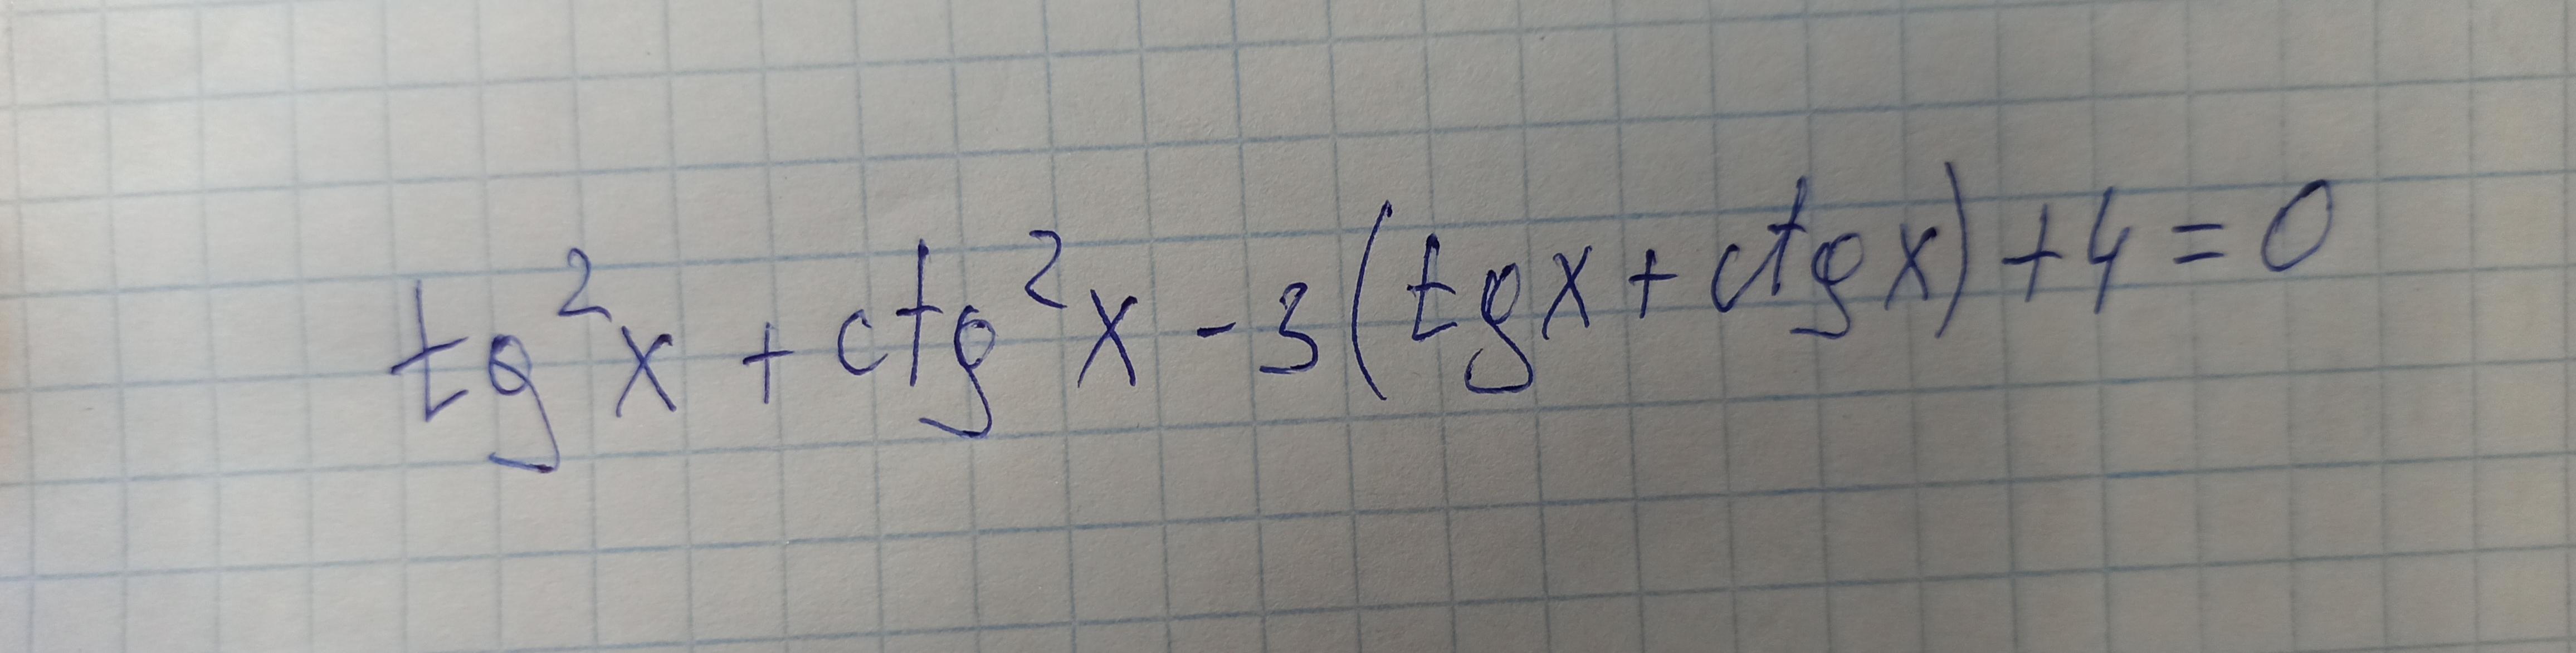 tg²x + ctg²x - 3(tgx + ctgx) + 4 = 0